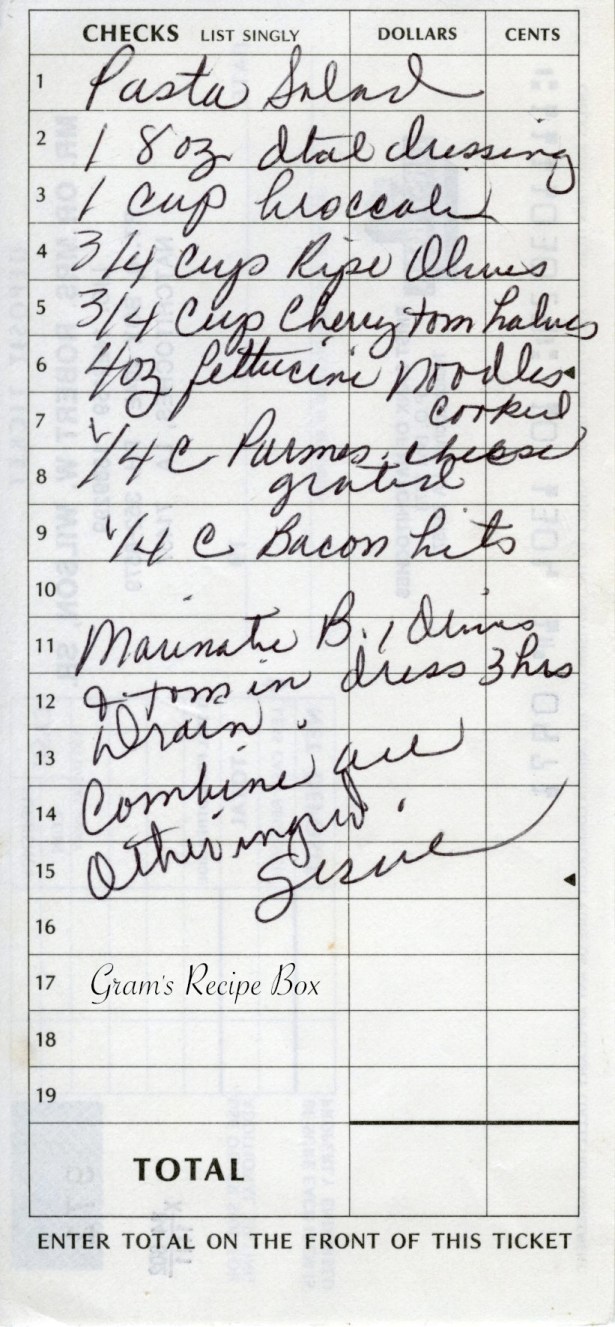 CHECKS LIST SINGLY DOLLARS CENTS
1 Pasta Salad
2 1 8 oz Ital dressing
3 1 cup broccoli
4 3/4 cups Ripe Olives
5 3/4 cup Cherry tom halves
6 4oz fettucini noodles
7 cooked
1/4 C Parmes. cheese
8 grated
9 1/4 C Bacon bits
10
11 Marinate B., Olives
12 & tom in dress 3 hrs
13 Drain.
Combine all
14 Other ingred.
15 Serve
16
17 Gram's Recipe Box
18
19
TOTAL
ENTER TOTAL ON THE FRONT OF THIS TICKET